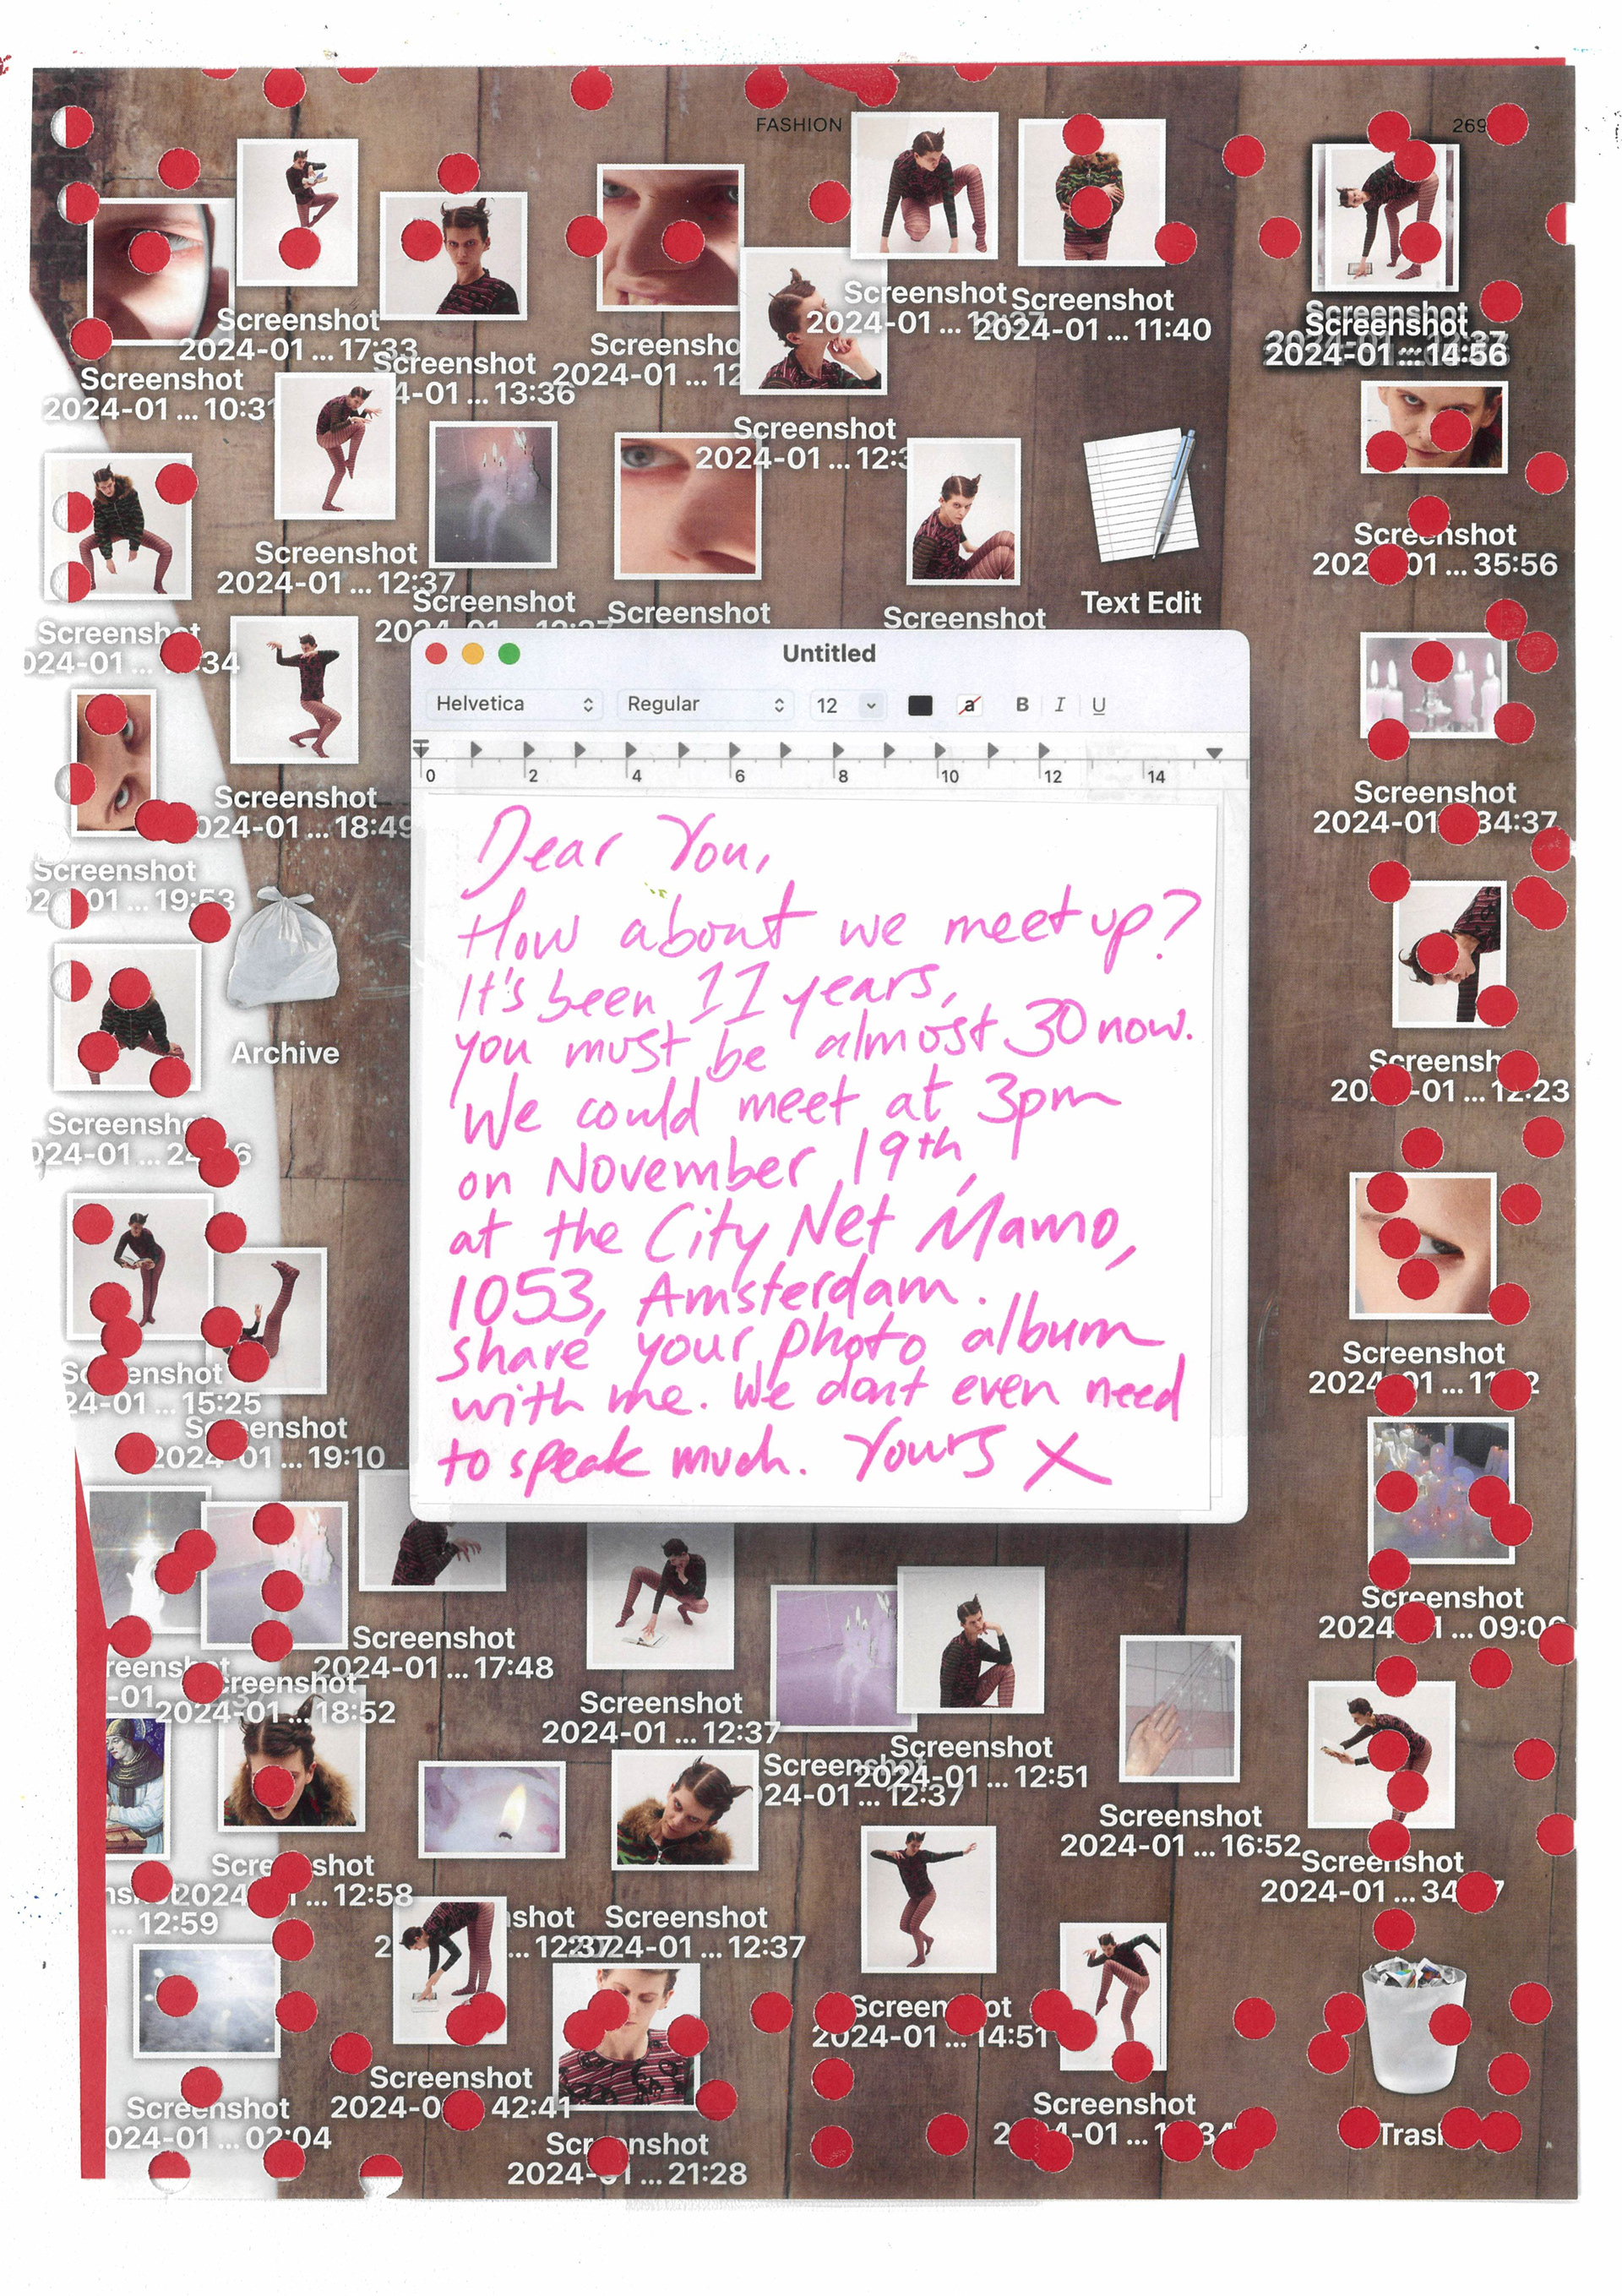 FASHION
269
Screenshot
2024-01 ... 17:33
Screenshot
2024-01 ... 10:31
Screenshot
4-01 ... 13:36
Screensho
2024-01 ... 12
Screenshot
2024-01 ...
Screenshot
2024-01 ... 11:40
Screenshot
2024-01 ... 14:56
Screenshot
2024-01 ... 12:3
Screenshot
2024-01 ... 12:37
Screenshot
Screenshot
Screenshot
Text Edit
Screenshot
01 ... 35:56
Screenshot
024-01 ... 34
Screenshot
024-01 ... 18:49
Screenshot
01 ... 19:53
Archive
Screensh
024-01 ... 24 6
Screenshot
24-01 ... 15:25
Screenshot
2024-01 ... 19:10
Untitled
Helvetica
Regular
12
a
B I U
0 2 4 6 8 10 12 14
Dear You,
How about we meet up?
It's been 11 years,
you must be almost 30 now.
We could meet at 3pm
on November 19th,
at the City Net Mamo,
1053, Amsterdam.
share your photo album
with me. We dont even need
to speak much. Yours X
Screenshot
2024-01 34:37
Screensh
20 -01 ... 12:23
Screenshot
2024 01 ... 11 2
Screenshot
2024 1 ... 09:0
Screenshot
2024-01 ... 17:48
reenshot
-01
creenshot
2024-01 ... 18:52
Screenshot
2024-01 ... 12:37
Screenshot
24-01 ... 12:37
Screenshot
2024-01 ... 12:51
Screenshot
2024-01 ... 16:52
Screenshot
2024-01 ... 34 7
Screenshot
2024 1 ... 12:58
... 12:59
shot
... 12:37
Screenshot
24-01 ... 12:37
Screenshot
2024-01 ... 14:51
Screenshot
2024-0 42:41
Screenshot
024-01 ... 02:04
Screenshot
2024-01 ... 21:28
Screenshot
2 4-01 ... 1 34
Trash